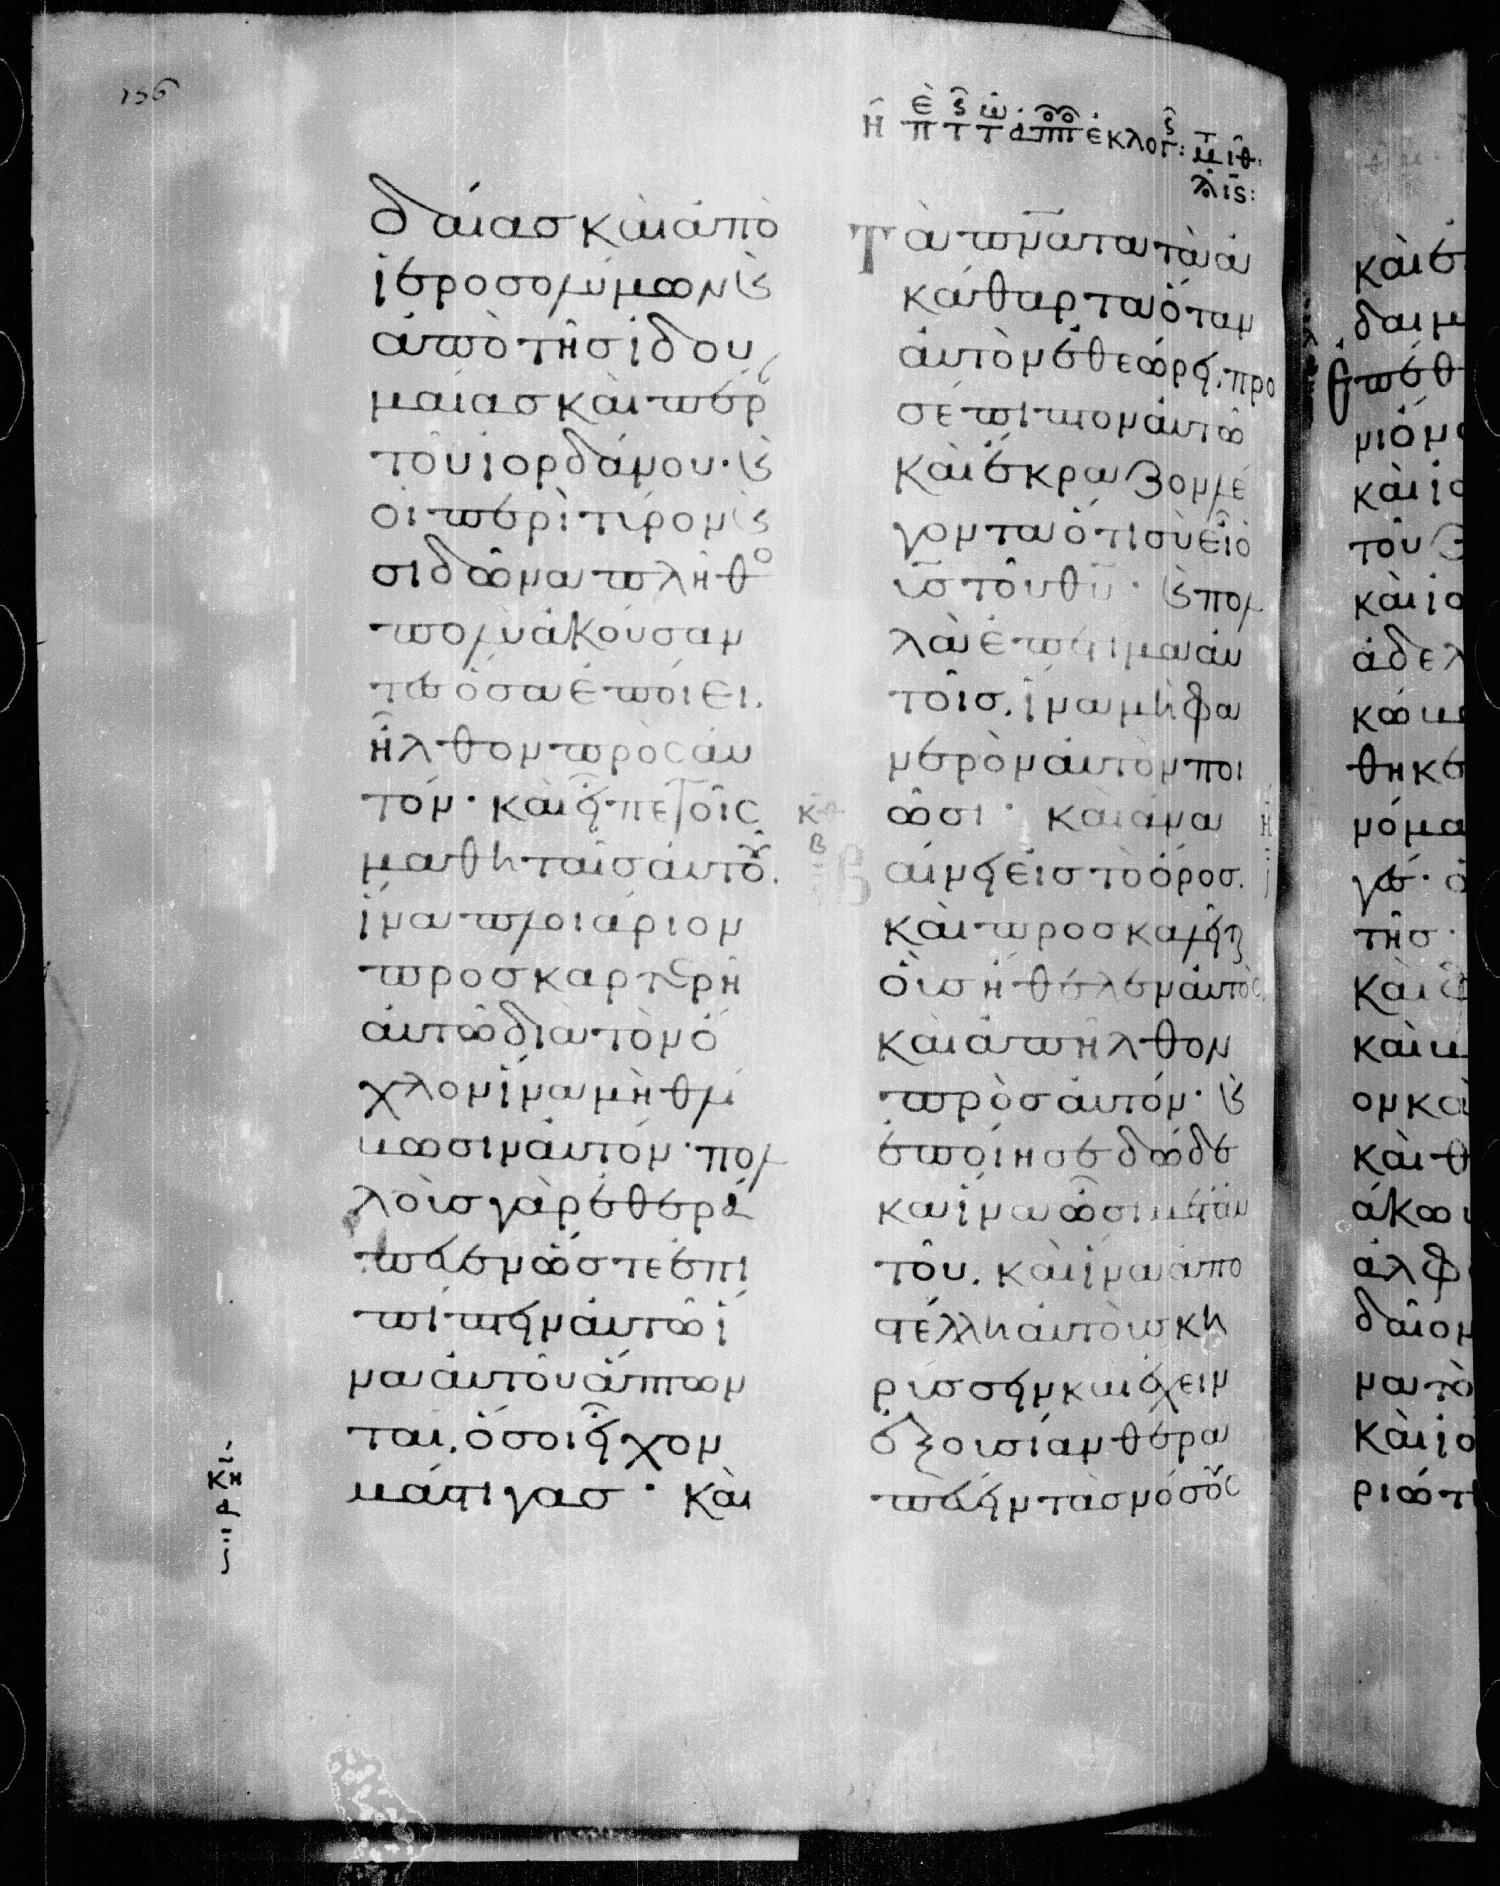 156
δαίασ καὶ ἀπὸ
ἱεροσολύμων (καὶ)
ἀπὸ τῆσ ἰδου
μαίασ καὶ πέρ
τοῦ ἰορδάνου· (καὶ)
οἱ περὶ τύρον (καὶ)
σιδῶνα πλῆθο
πολὺ ἀκούσαν
τεσ ὅσα ἐποίει.
ἦλθον πρὸσ αὐ
τόν· καὶ εἶπε τοῖσ
μαθηταῖσ αὐτοῦ.
ἵνα πλοιάριον
προσκαρτερῆ
αὐτῶ διὰ τὸν ὄ
χλον ἵνα μὴ θλί
βωσιν αὐτόν· πολ
λοὺσ γὰρ ἐθερά
πευεν ὥστε ἐπι
πίπτειν αὐτῶ ἵ
να αὐτοῦ ἅπτων
ται. ὅσοι εἶχον
μάστιγασ· καὶ
τὰ πν̅α̅τα τὰ ἀ
κάθαρτα ὅταν
αὐτὸν ἐθεώρει. προ
σέπιπτον αὐτῶ
καὶ ἔκραζον λέ
γοντα ὅτι σὺ εἶ ὁ
υ̅σ̅ τοῦ θ̅υ̅· (καὶ) πολ
λὰ ἐπετίμα αὐ
τοῖσ. ἵνα μὴ φα
νερὸν αὐτὸν ποι
ῶσι· καὶ ἀνα
βαίνει εἰσ τὸ ὄροσ.
καὶ προσκαλεῖτ(αι)
οὓσ ἤθελεν αὐτόσ,
καὶ ἀπῆλθον
πρὸσ αὐτόν· (καὶ)
ἐποίησε δώδε
κα ἵνα ὦσι μετ' αὐ
τοῦ. καὶ ἵνα ἀπο
στέλλη αὐτοὺσ κη
ρύσσειν καὶ ἔχειν
ἐξουσίαν θερα
πεύειν τὰσ νόσουσ